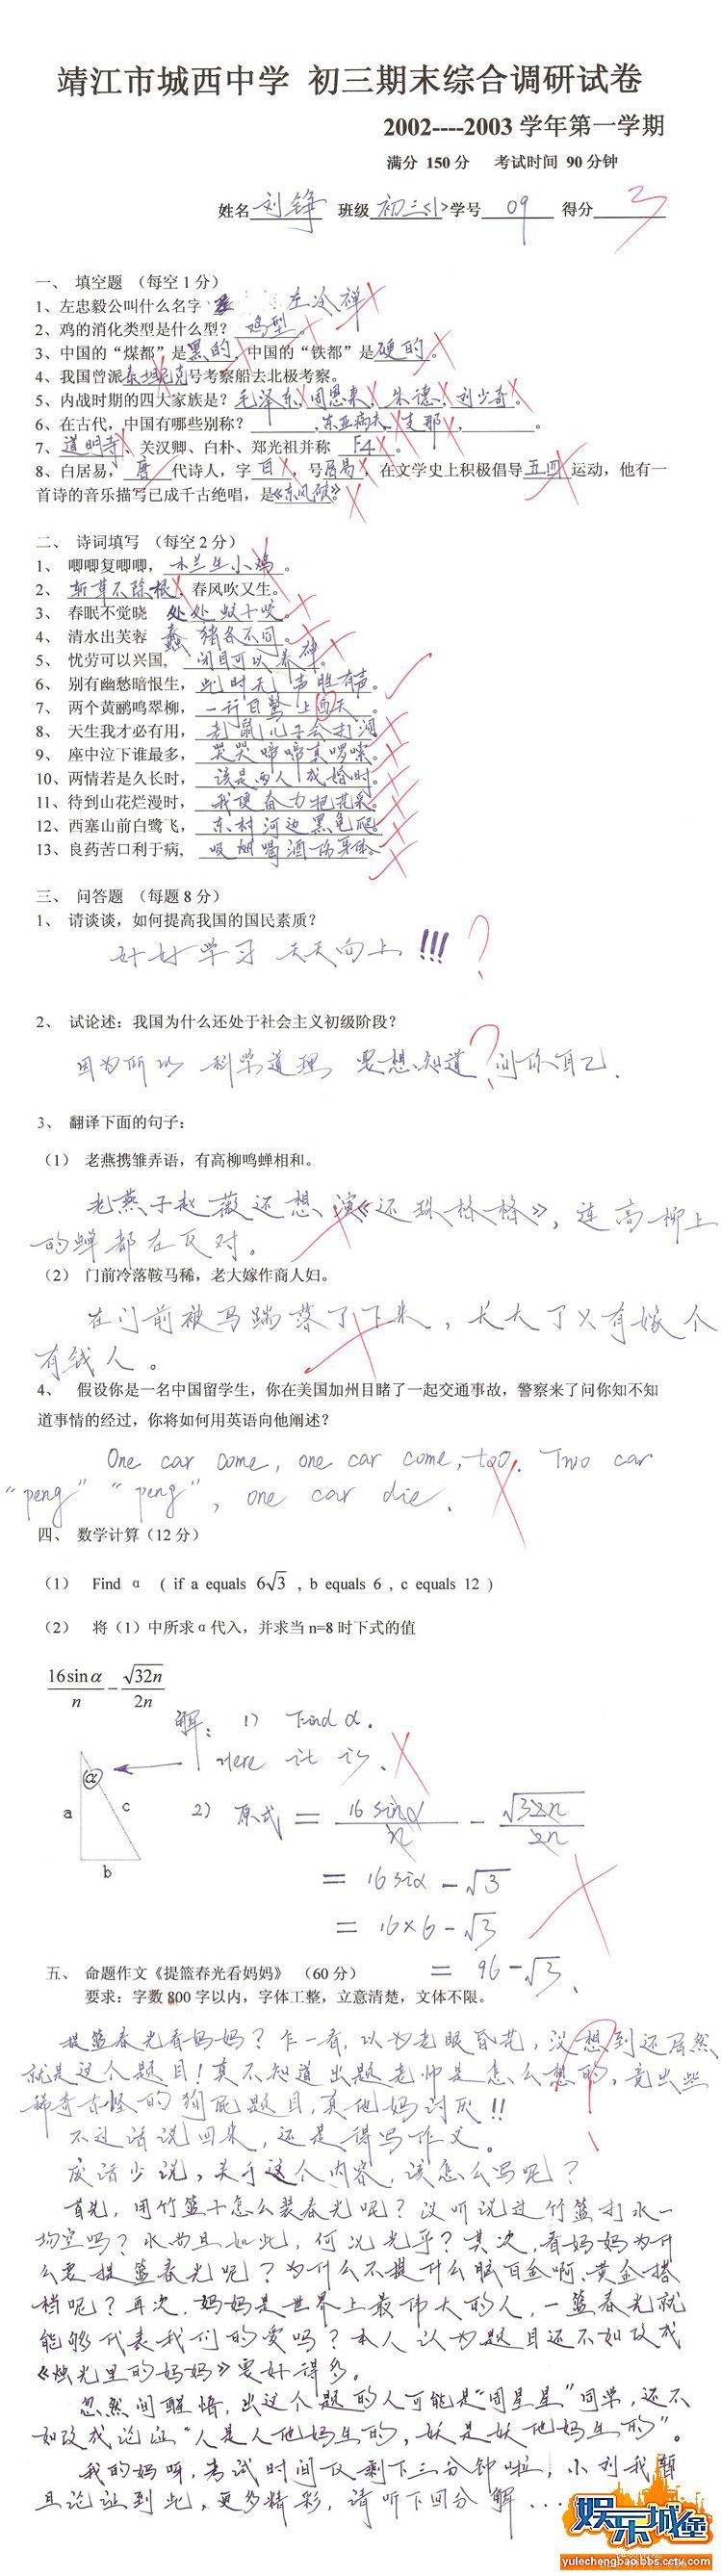 靖江市城西中学 初三期末综合调研试卷
2002----2003 学年第一学期
满分 150 分 考试时间 90 分钟
姓名 刘铮 班级 初三<1> 学号 09 得分 3
一、 填空题 （每空 1 分）
1、左忠毅公叫什么名字 左冷禅
2、鸡的消化类型是什么型？ 鸡型 。
3、中国的“煤都”是黑的，中国的“铁都”是硬的。
4、我国曾派泰坦尼克号考察船去北极考察。
5、内战时期的四大家族是？毛泽东，周恩来，朱德，刘少奇。
6、在古代，中国有哪些别称？ ，东亚病夫，支那， 。
7、道明寺、关汉卿、白朴、郑光祖并称 F4 。
8、白居易，唐 代诗人，字 白 ，号居易，在文学史上积极倡导五四运动，他有一
首诗的音乐描写已成千古绝唱，是《东风破》
二、 诗词填写 （每空 2 分）
1、 唧唧复唧唧，木兰生小鸡。
2、 斩草不除根，春风吹又生。
3、 春眠不觉晓 处处蚊子咬。
4、 清水出芙蓉 蠢猪各不同。
5、 忧劳可以兴国， 闭目可以养神。
6、 别有幽愁暗恨生，此时无声胜有声。
7、 两个黄鹂鸣翠柳，一行白鹭上西天。
8、 天生我才必有用，老鼠儿子会打洞
9、 座中泣下谁最多，哭哭啼啼真啰嗦。
10、两情若是久长时，该是两人成婚时。
11、待到山花烂漫时，我便奋力把花采。
12、西塞山前白鹭飞，东村河边黑龟爬。
13、良药苦口利于病，吸烟喝酒伤身体。
三、 问答题 （每题 8 分）
1、 请谈谈，如何提高我国的国民素质？
好好学习 天天向上 !!! ?
2、 试论述：我国为什么还处于社会主义初级阶段？
因为所以 科学道理 要想知道 ? 问你自己.
3、 翻译下面的句子：
（1） 老燕携雏弄语，有高柳鸣蝉相和。
老燕子赵薇还想演《还珠格格》，连高柳上
的蝉都在反对。
（2） 门前冷落鞍马稀，老大嫁作商人妇。
在门前被马踹落了下来，长大了只有嫁个
有钱人。
4、 假设你是一名中国留学生，你在美国加州目睹了一起交通事故，警察来了问你知不知
道事情的经过，你将如何用英语向他阐述？
One car come, one car come, too. Two car
“peng” “peng”, one car die.
四、 数学计算（12 分）
（1） Find α ( if a equals 6√3 , b equals 6 , c equals 12 )
（2） 将（1）中所求α代入，并求当 n=8 时下式的值
16sinα/n − √32n/2n
解： 1) Find α.
Here it is.
α
a
c
b
2) 原式 = 16sinα/n − √32n/2n
= 16siα − √3
= 16×6 − √3
= 96 − √3.
五、 命题作文《提篮春光看妈妈》 （60 分）
要求：字数 800 字以内，字体工整，立意清楚，文体不限。
提篮春光看妈妈？乍一看，以为老眼昏花，没想到还居然
就是这个题目！真不知道出题老师是怎么想的，竟出些
稀奇古怪的狗屁题目，真他妈讨厌!!
不过话说回来，还是得写作文。
废话少说，关于这个内容，该怎么写呢？
首先，用竹篮子怎么装春光呢？没听说过竹篮打水一
场空吗？水尚且如此，何况光乎？其次，看妈妈为什
么要提篮春光呢？为什么不提什么脑白金啊、黄金搭
档呢？再次，妈妈是世界上最伟大的人，一篮春光就
能够代表我们的爱吗？本人认为题目还不如改成
《烛光里的妈妈》要好得多。
忽然间醒悟，出这个题的人可能是“周星星”同学，还不
如改成论证“人是人他妈生的，妖是妖他妈生的”。
我的妈呀，考试时间仅剩下三分钟啦，小刘我暂
且论证到此，更多精彩，请听下回分解....
娱乐城堡
yulechengbaobbs.cctv.com